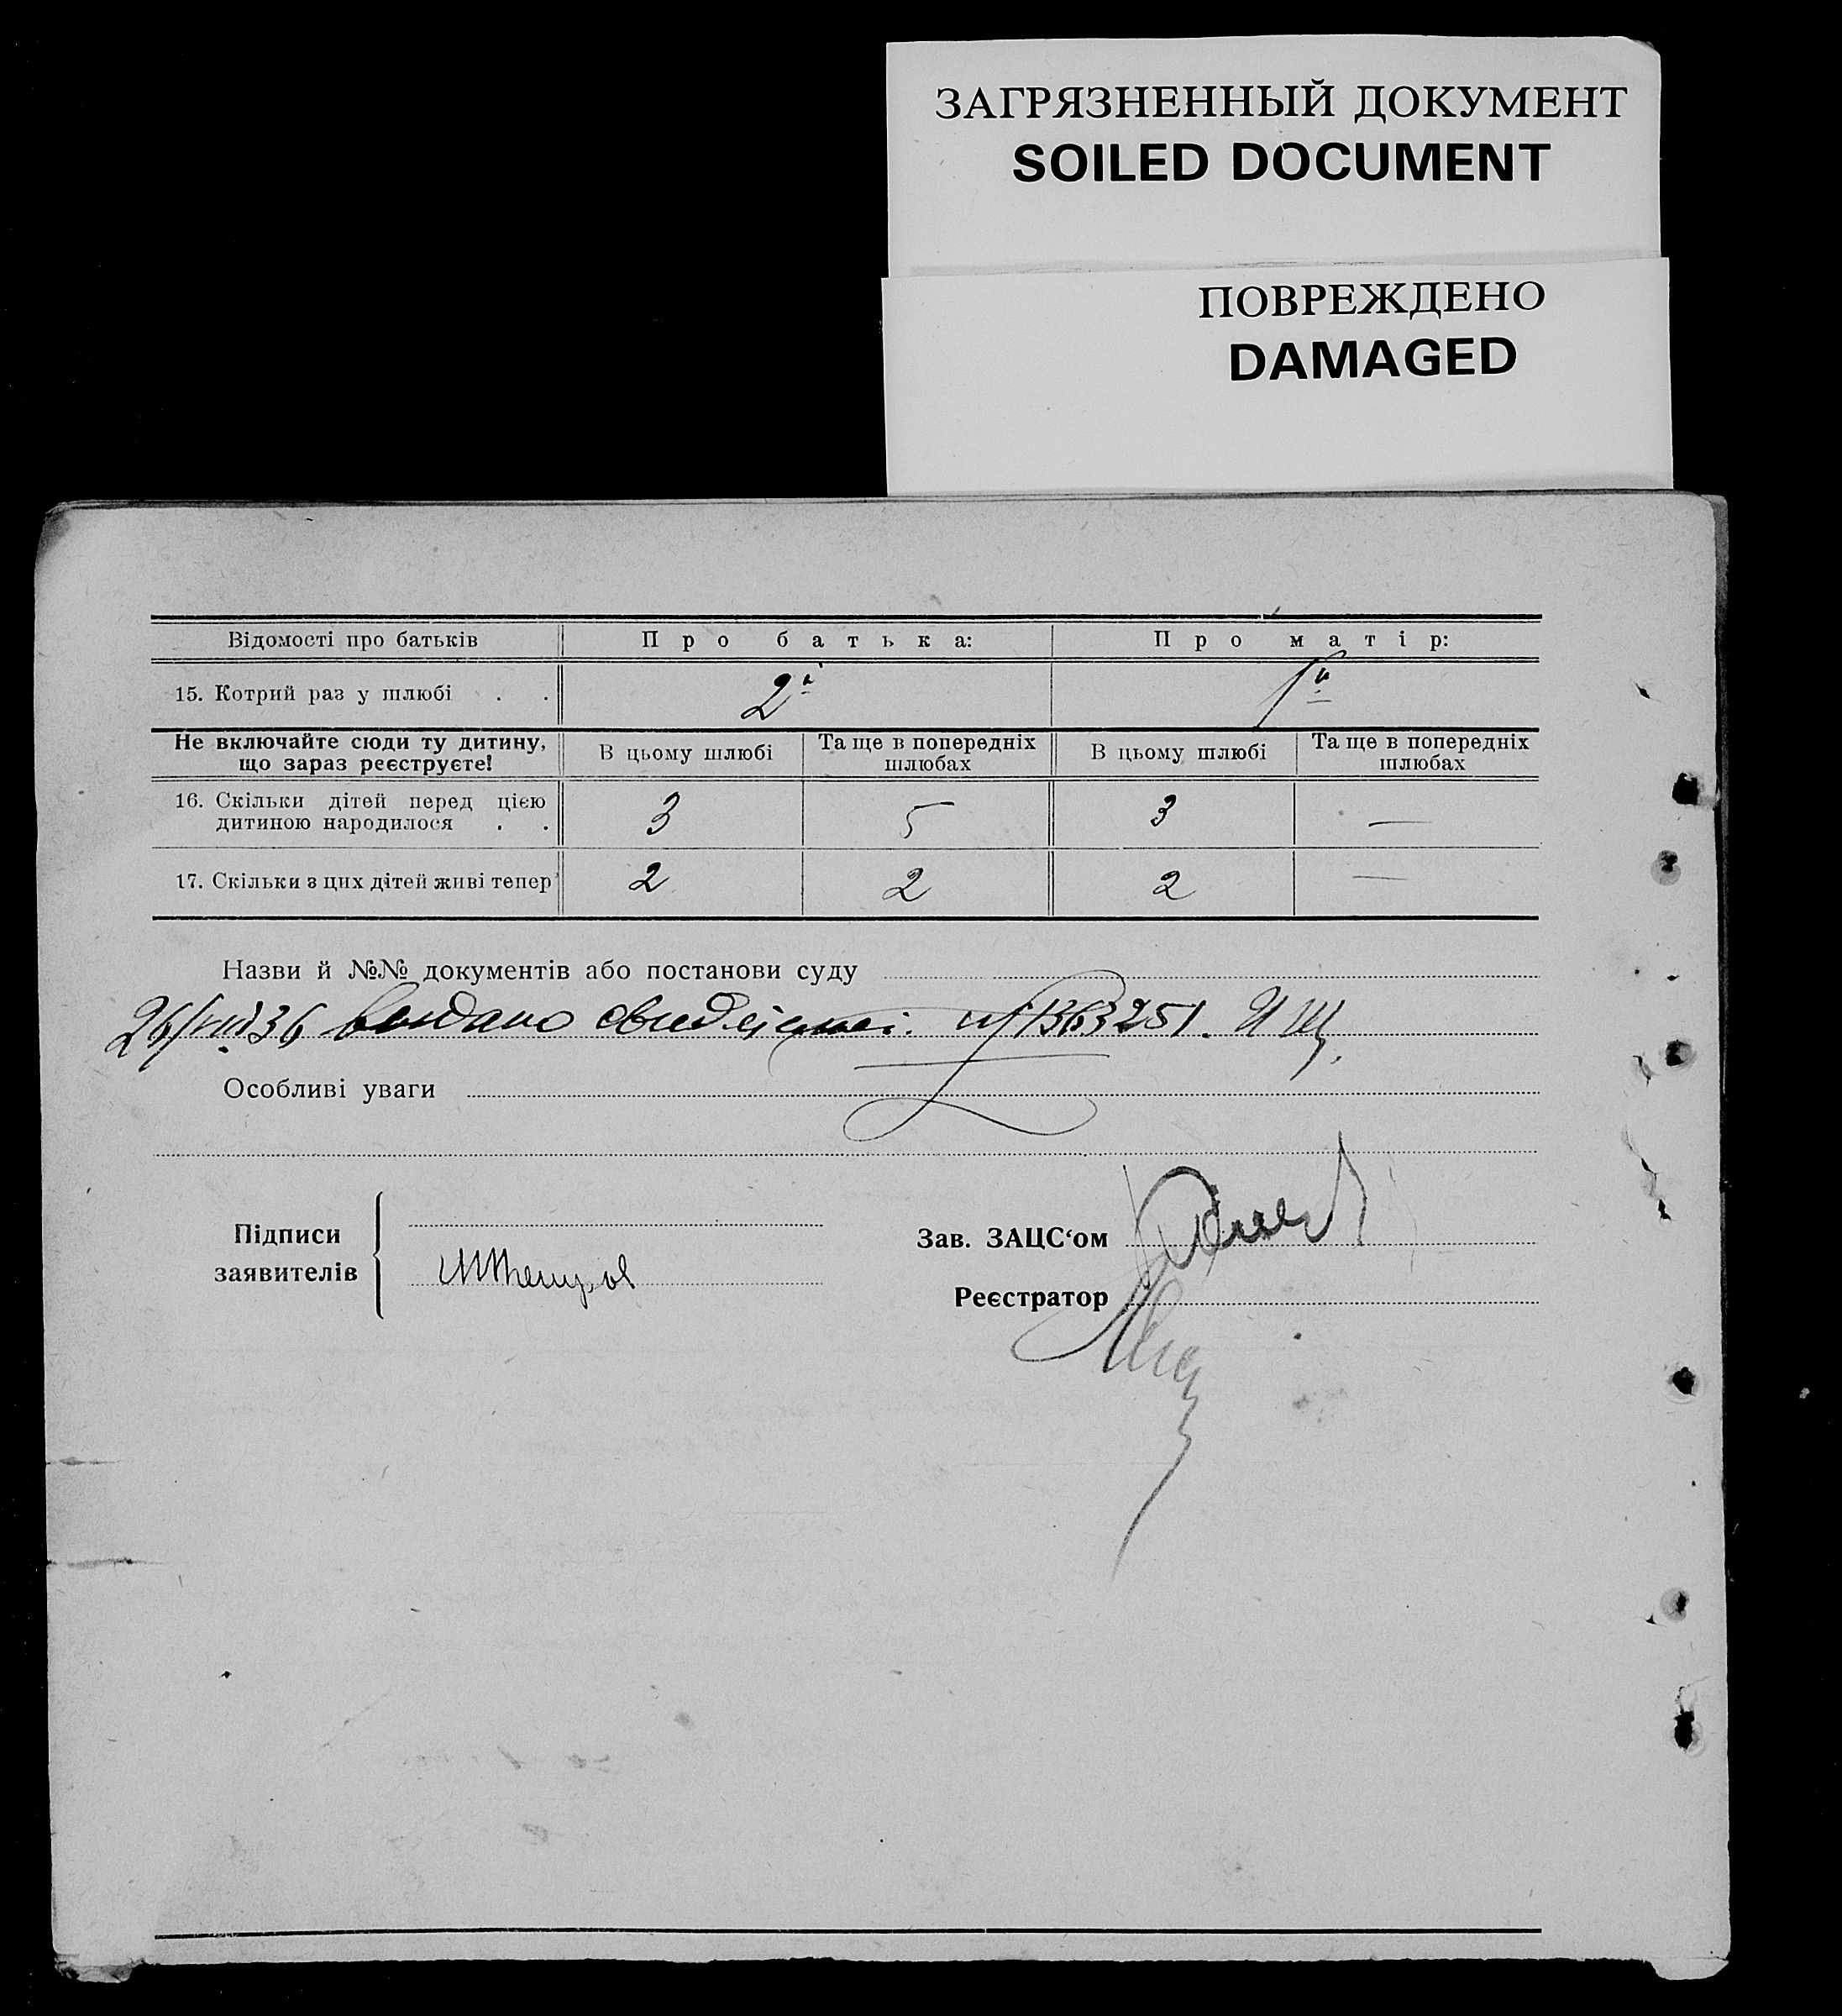 ЗАГРЯЗНЕННЫЙ ДОКУМЕНТ
SOILED DOCUMENT
ПОВРЕЖДЕНО
DAMAGED
Відомості про батьків Про батька: Про матір:
15. Котрий раз у шлюбі . . 2й 1й
Не включайте сюди ту дитину, що зараз реєструєте! В цьому шлюбі Та ще в попередніх шлюбах В цьому шлюбі Та ще в попередніх шлюбах
16. Скільки дітей перед цією
дитиною народилося . . 3 5 3 —
17. Скільки з цих дітей живі тепер 2 2 2 —
Назви й №№ документів або постанови суду
26/VIII 36 видано свидіцтві. № 1363251.
Особливі уваги
Підписи
заявителів
Зав. ЗАЦС‘ом
Реєстратор